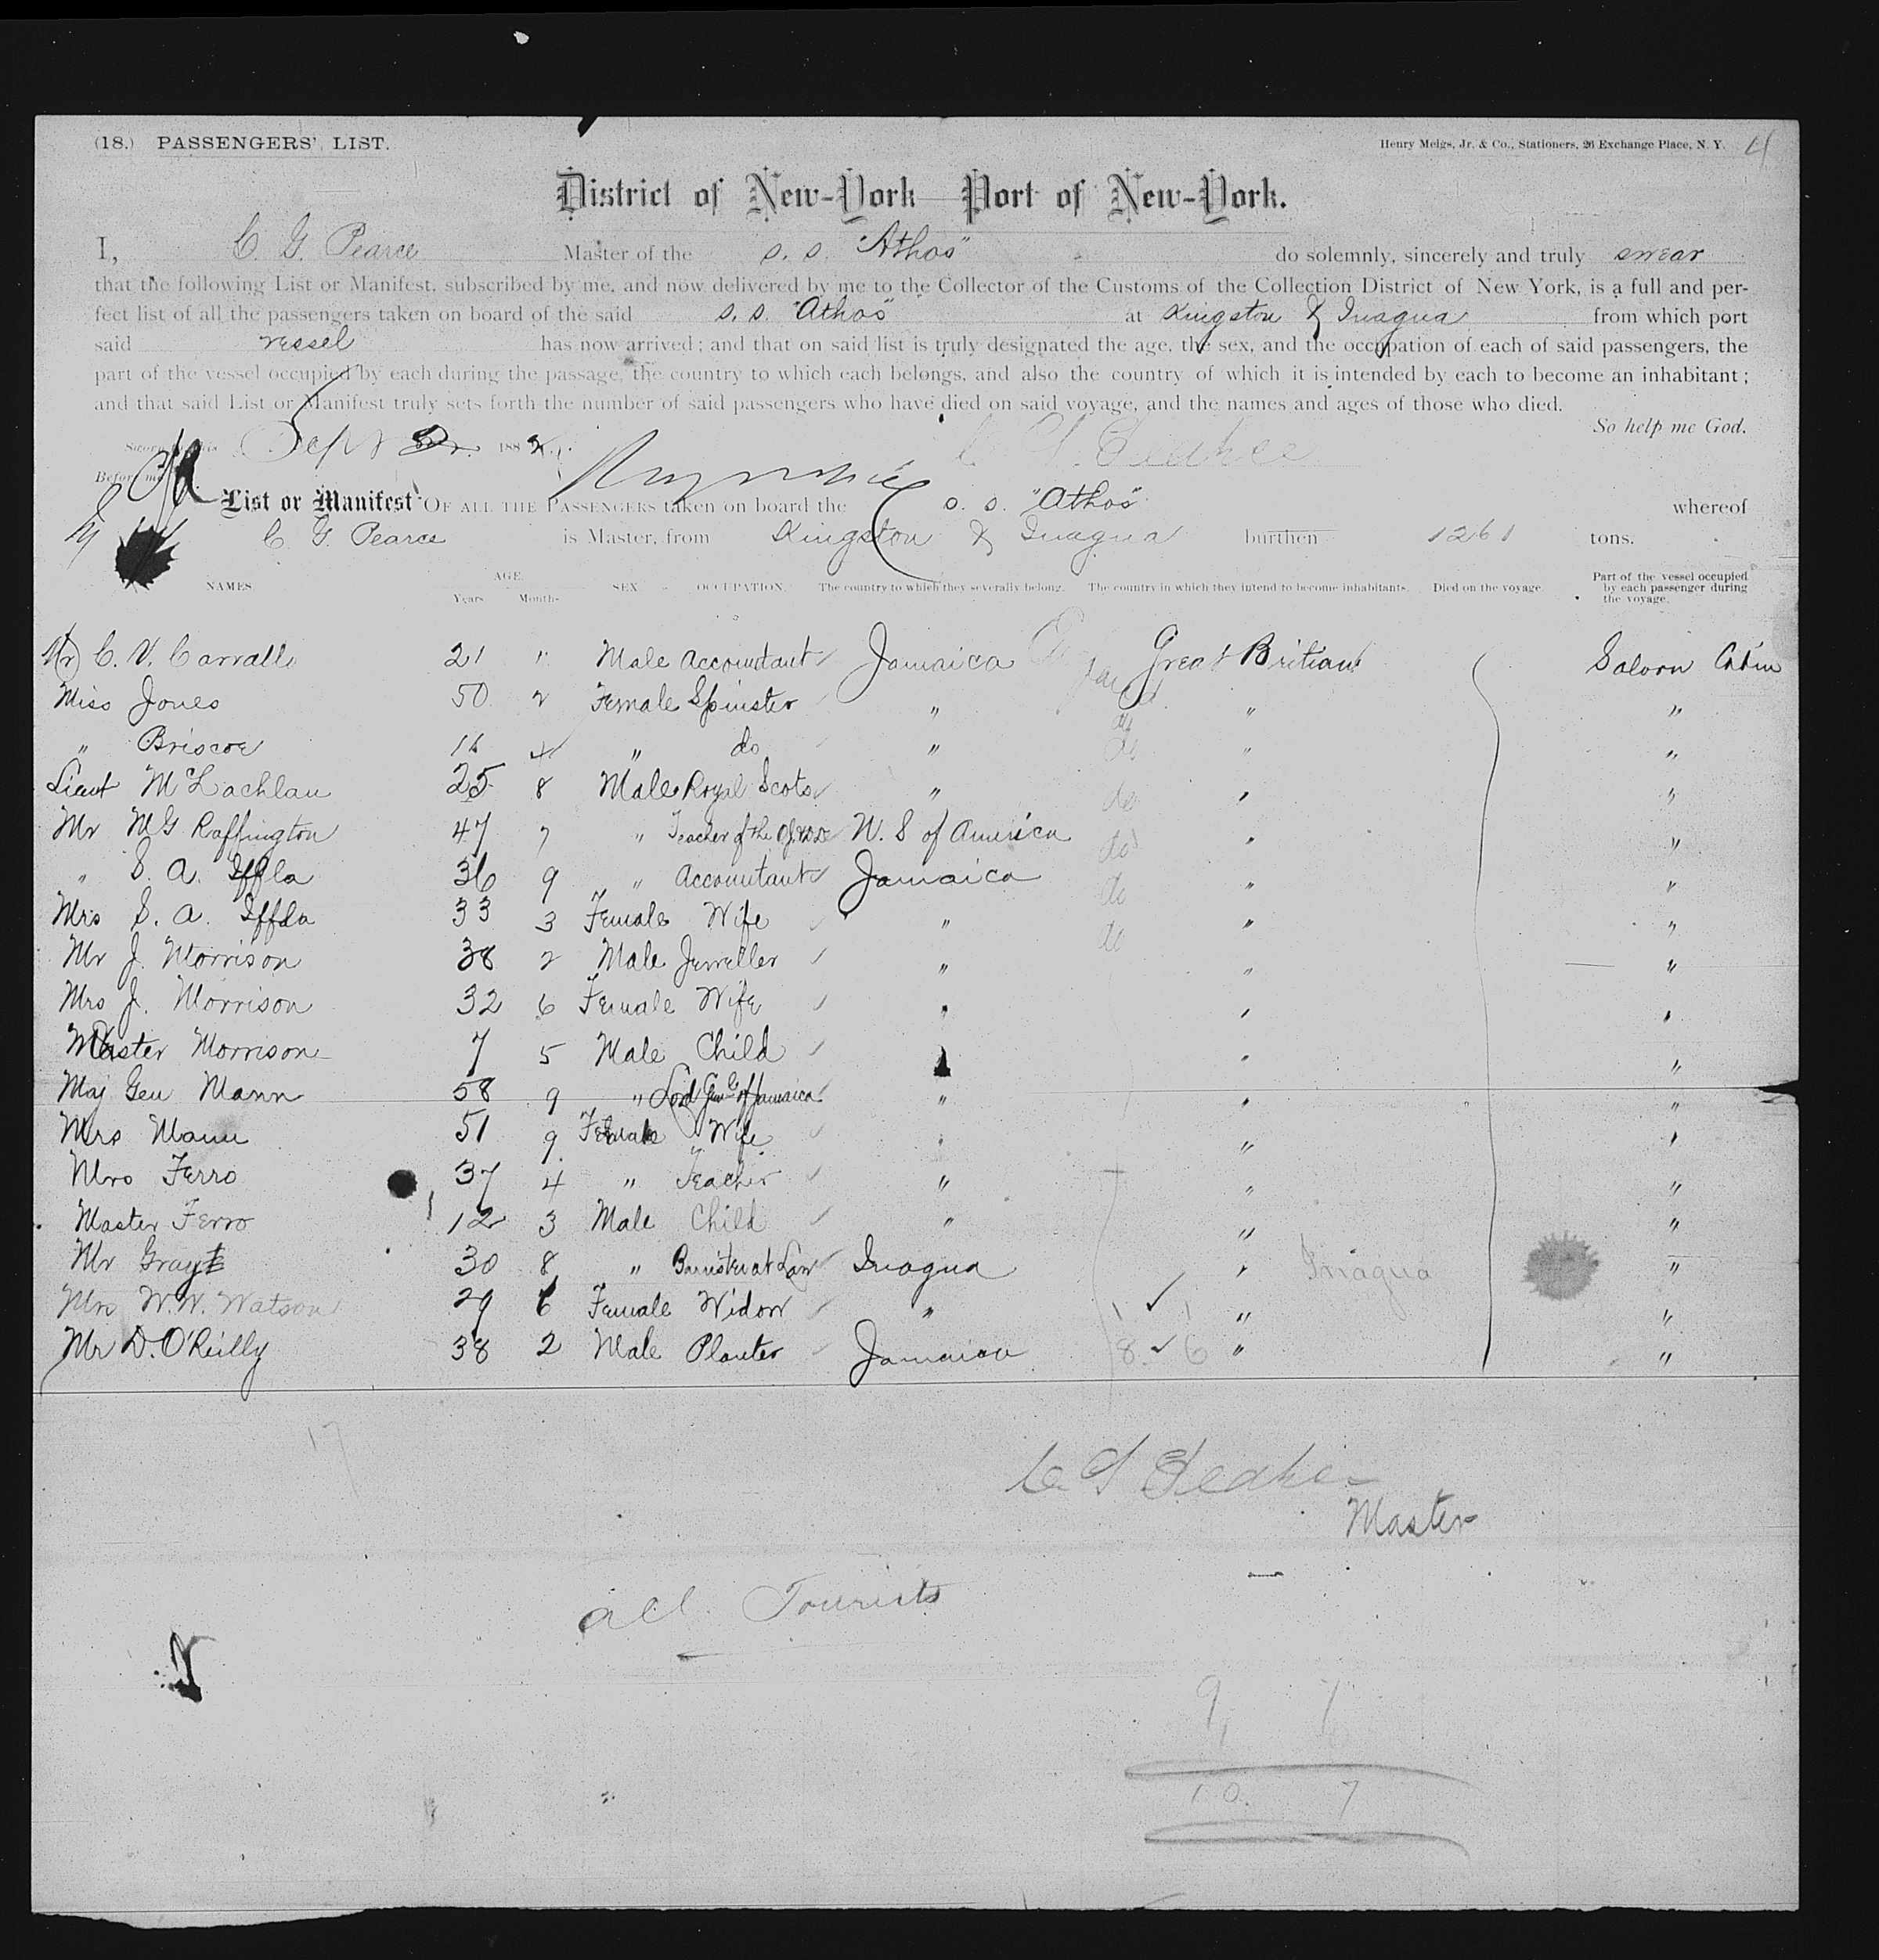 (18.) PASSENGERS' LIST.
Henry Meigs, Jr. & Co., Stationers, 26 Exchange Place, N. Y.
District of New-York Port of New-York.
I, C. G. Pearce Master of the S. S. "Athos" do solemnly, sincerely and truly swear
that the following List or Manifest, subscribed by me, and now delivered by me to the Collector of the Customs of the Collection District of New York, is a full and per-
fect list of all the passengers taken on board of the said S. S. "Athos" at Kingston & Inagua from which port
said vessel has now arrived; and that on said list is truly designated the age, the sex, and the occupation of each of said passengers, the
part of the vessel occupied by each during the passage, the country to which each belongs, and also the country of which it is intended by each to become an inhabitant;
and that said List or Manifest truly sets forth the number of said passengers who have died on said voyage, and the names and ages of those who died.
So help me God.
Sept 188
Before me
List or Manifest OF ALL THE PASSENGERS taken on board the S. S. "Athos" whereof
C. G. Pearce is Master, from Kingston & Inagua burthen 1261 tons.
NAMES AGE. Years. Months. SEX OCCUPATION. The country to which they severally belong. The country in which they intend to become inhabitants. Died on the voyage. Part of the vessel occupied by each passenger during the voyage.
Mr C. V. Carvalle 21 " Male Accountant Jamaica Great Britian Saloon Cabin
Miss Jones 50 2 Female Spinster " " "
" Briscoe 16 4 " do " do " "
Lieut McLachlan 25 8 Male Royal Scots " do " "
Mr Raffington 47 7 " Teacher of the U. S of America do " "
" S. A. Iffla 36 9 " Accountant Jamaica do " "
Mrs S. A. Iffla 33 3 Female Wife " do " "
Mr J. Morrison 38 2 Male Jeweller " " "
Mrs J. Morrison 32 6 Female Wife " " "
Master Morrison 7 5 Male Child " " "
Maj Gen Mann 58 9 " of Jamaica " " "
Mrs Mann 51 9 Female Wife " " "
Mrs Ferro 37 4 " Teacher " " "
Master Ferro 12 3 Male Child " " "
Mr Gray 30 8 " Barrister at Law Inagua " Inagua "
Mrs W. W. Watson 29 6 Female Widow " " "
Mr D. O'Reilly 38 2 Male Planter Jamaica 8 6 " "
17
C. G. Pearce
Master
all Tourists
9 7
10. 7